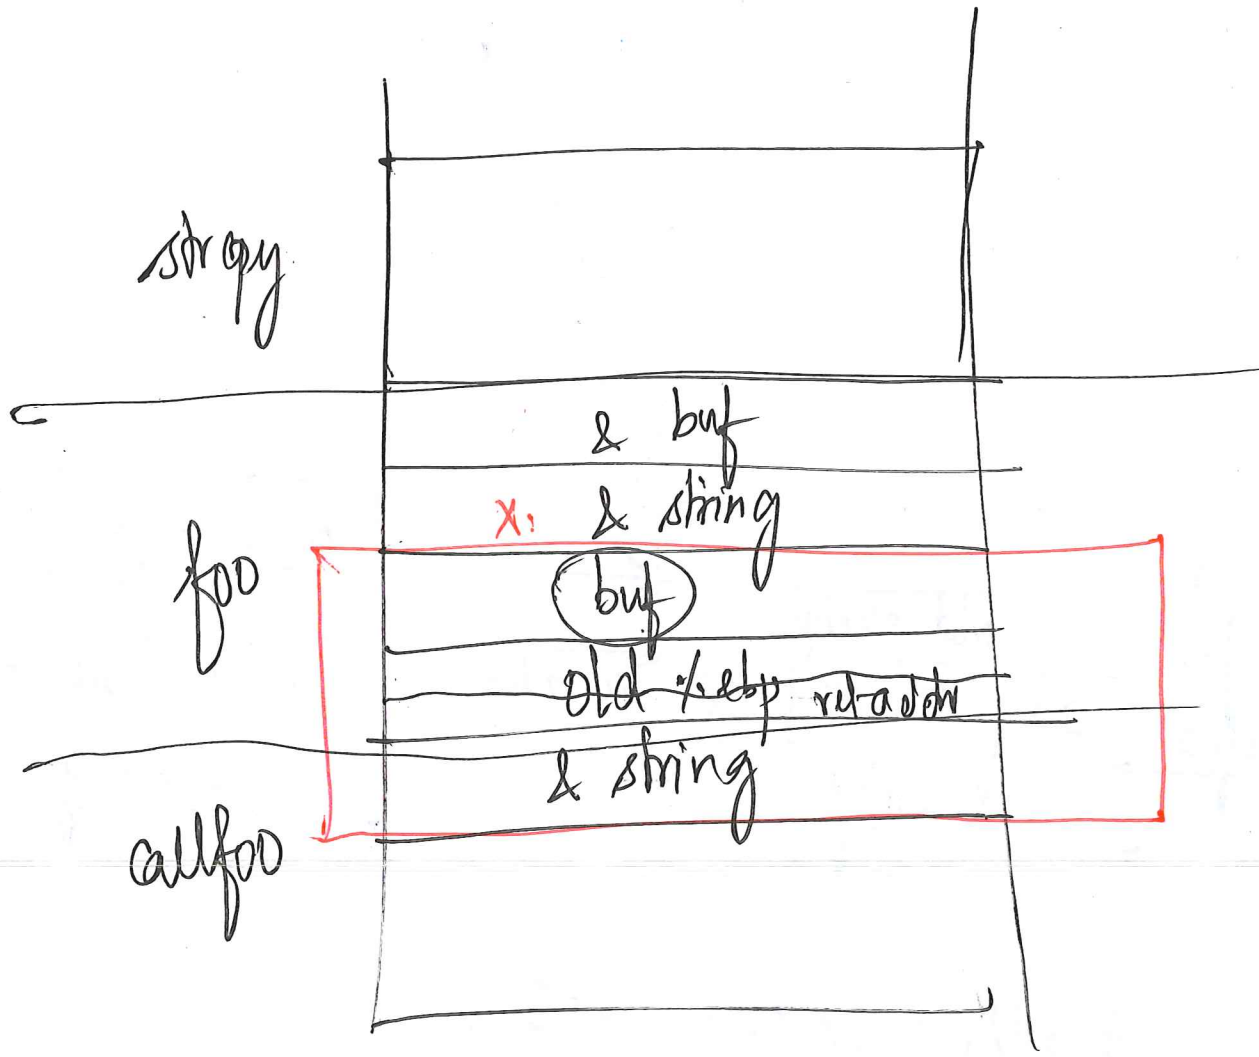 strcpy
& buf
X. & string
foo
buf
old %ebp ret-addr
& string
callfoo